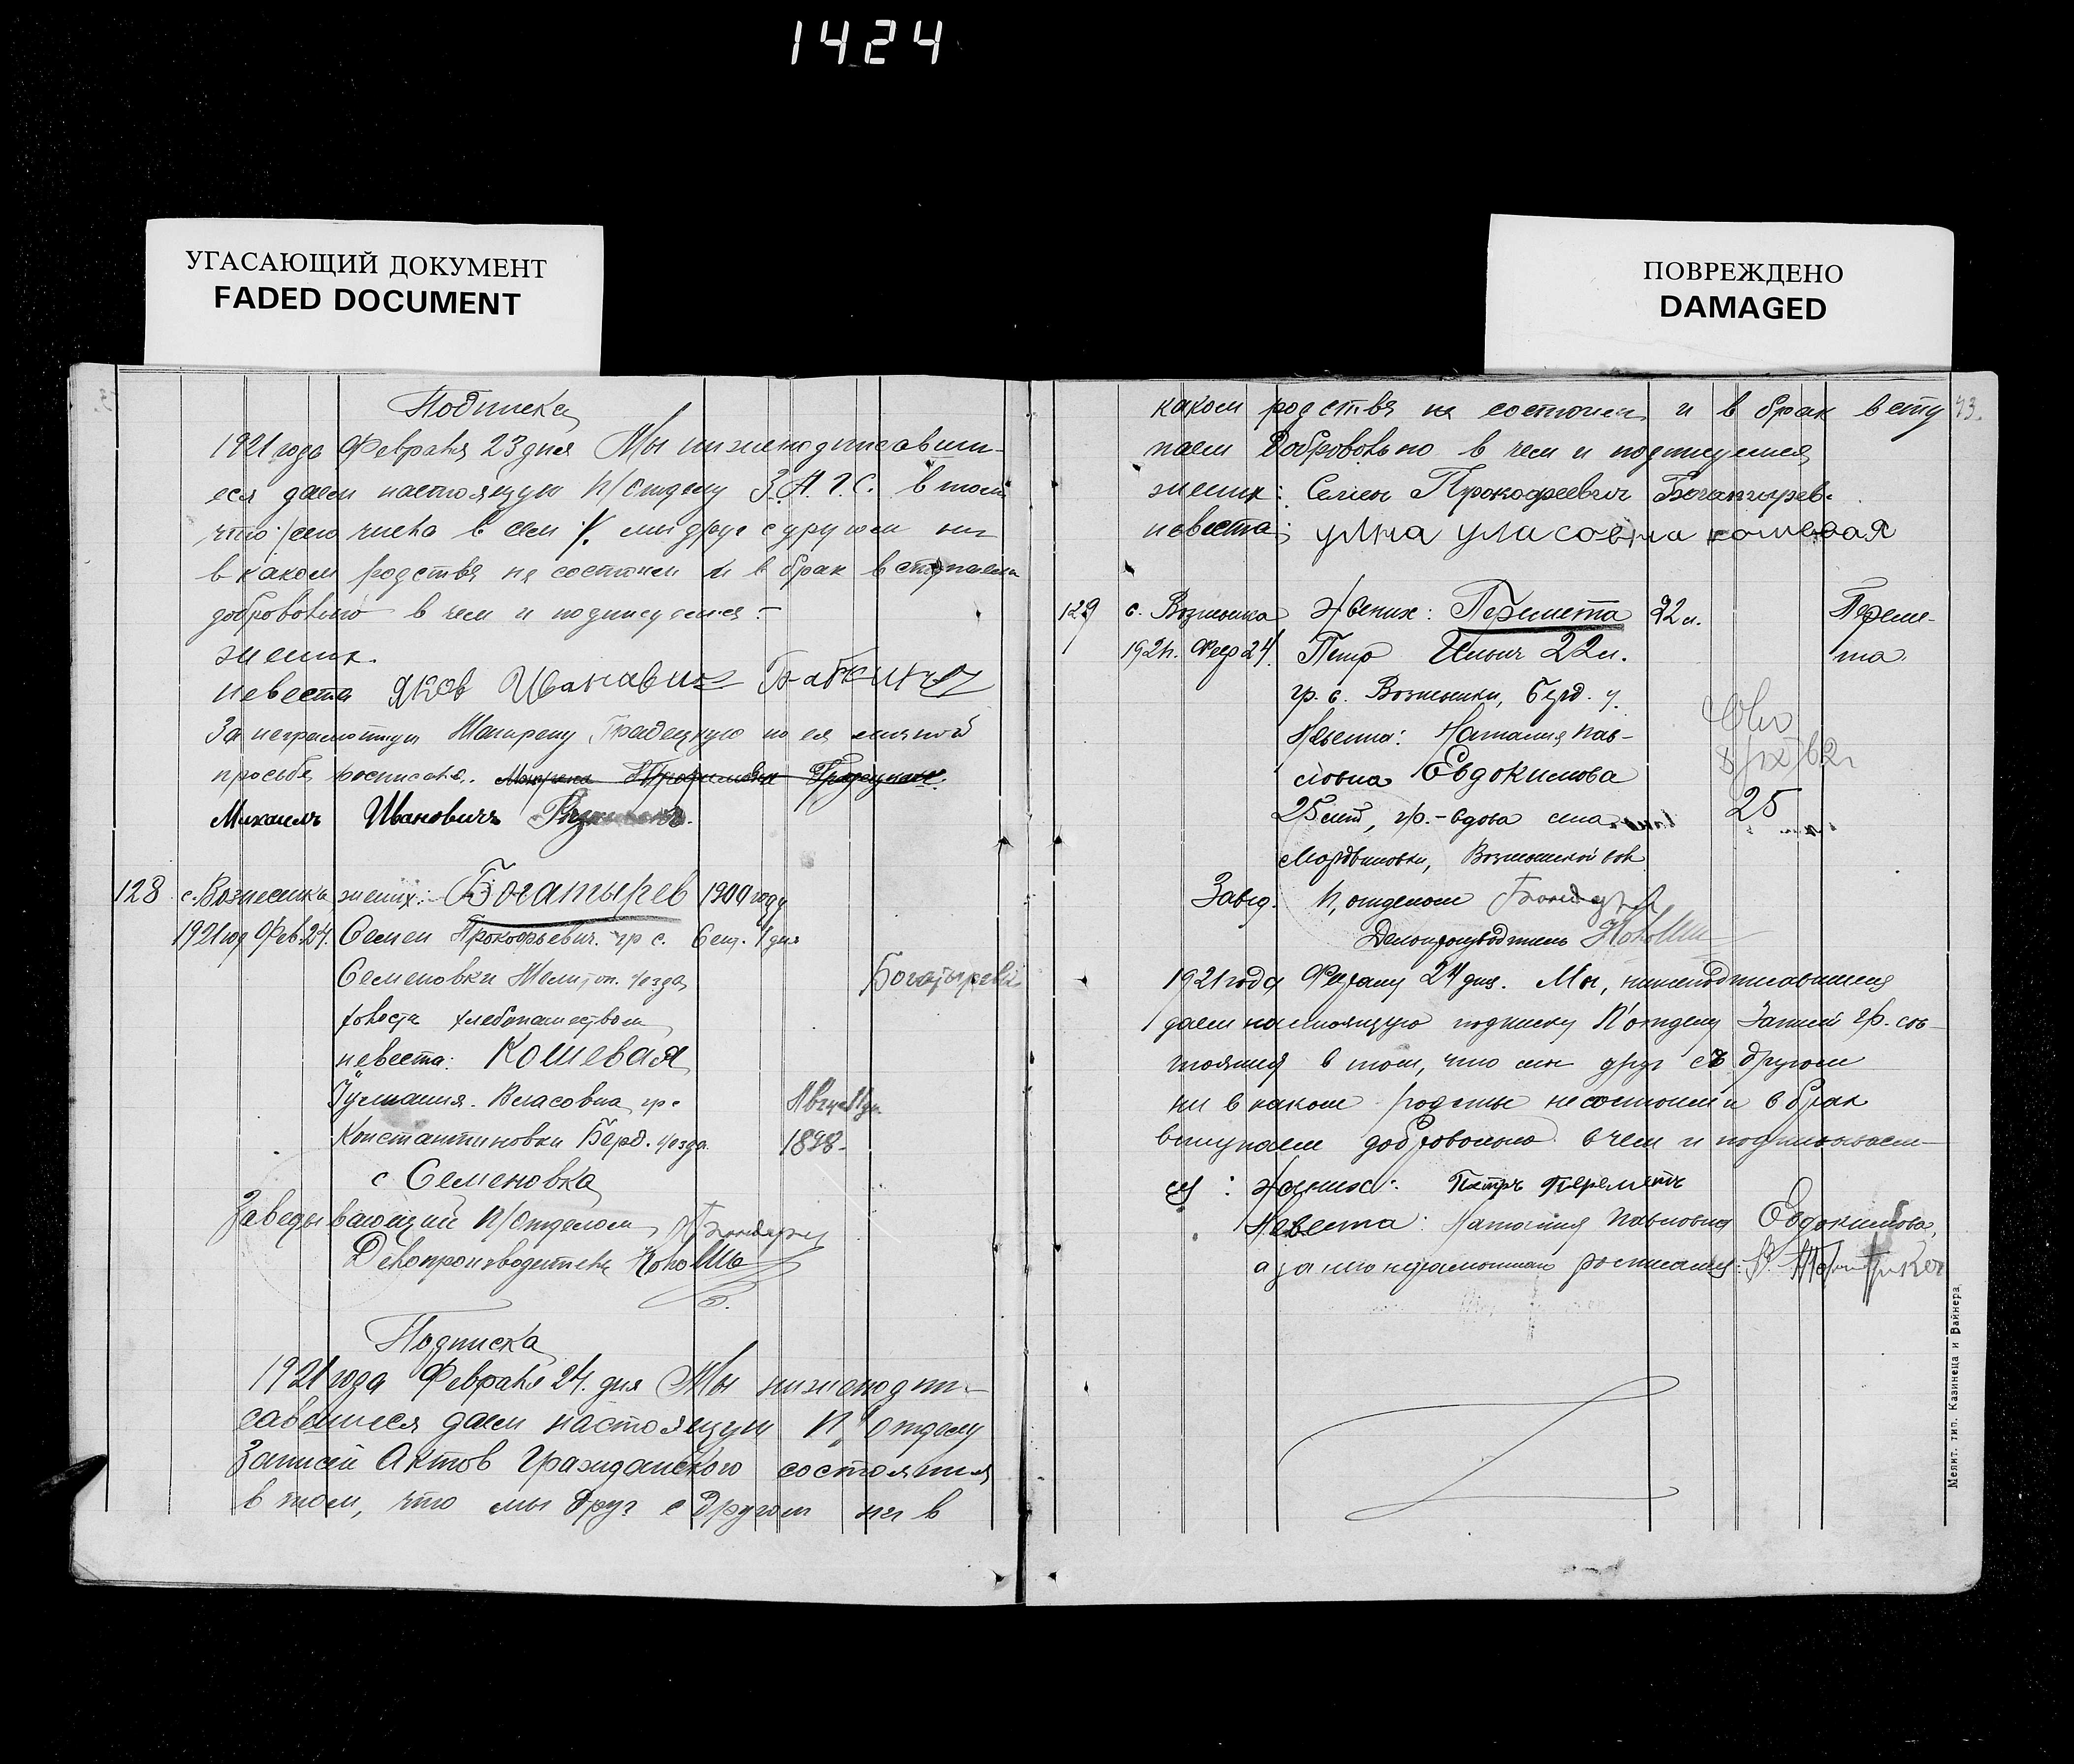 1424
УГАСАЮЩИЙ ДОКУМЕНТ
FADED DOCUMENT
ПОВРЕЖДЕНО
DAMAGED
Подписка
1921 года Февраля 23 дня Мы нижеподписавши-
еся даем настоящую п/отделу З.А.Г.С. в том
что сего числа в сем мы друг с другом ни
в каком родстве не состоим и в брак вступаем
добровольно в чем и подписуемся:-
жених.
невеста Яков Иванавич Бабкин
За неграмотную по ея личной
просьбе росписался.
Михаилъ Ивановичъ
128 с. Вознесенка жених: Богатырев 1900 году
1921 год Фев. 24. Семен Прокофьевич. гр. с. Сен. 1 дня
Семеновки Мелитоп. уезда, Богатырев
холоста хлебопашеством
невеста: Кошевая
Иулиания. Власовна, гр. Август
Константиновки Берд. уезда 1898.
с Семеновка
Заведывающий П/Отделом
Делопроизводитель
Подписка
1921 года Февраля 24. дня Мы нижеподпи-
савшиеся даем настоящую П/отделу
Записей Актов Гражданского состояния
в том, что мы друг с другом ни в
каком родстве не состоим и в брак всту 73.
паем добровольно в чем и подписуемся,
жених: Семен Прокофеевич Богатырев.
невеста: улна уласовна кошовая
129 с. Вознесенка Жених: Перемета 22 л. Переме-
1921 г. Фев 24. Петр Ильич 22 л. та.
гр. с. Вознесенки, Берд. у.
Невеста: Наталия Пав-
ловна Евдокимова
25 лет, гр. - вдова села 25
Мордвиновки, Вознесенской вол
Завед. П, отделом
Делопроизводитель
1921 года Февраля 24 дня. Мы, нижеподписавшиеся
даем настоящую подписку П'отделу Записей гр. сос-
тояния в том, что мы друг съ другом
ни в каком родстве не состоим и в брак
вступаем добровольно в чем и подписываем-
ся: Жених: Петръ Переметъ
Невеста: Наталия Павловна Евдокимова,
а за нею неграмотною росписался:
Мелит. тип. Казинеца и Вайнера